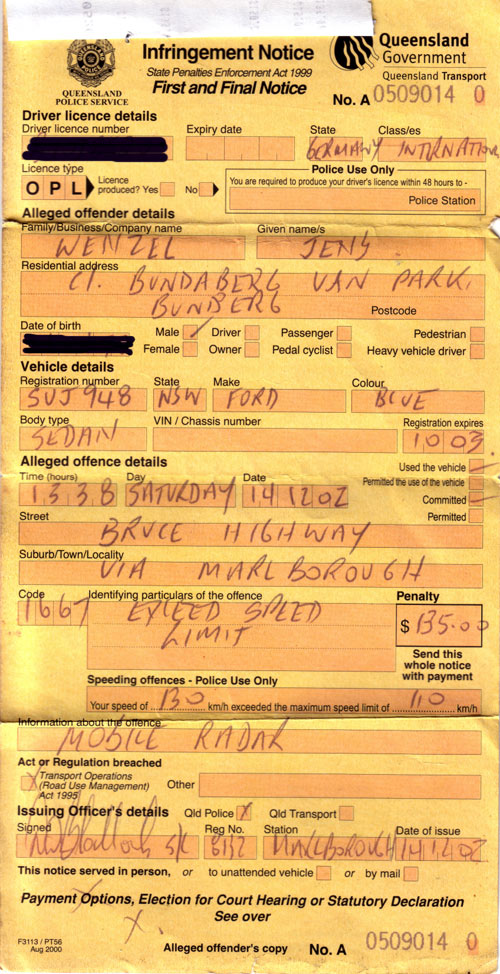 Infringement Notice
State Penalties Enforcement Act 1999
First and Final Notice
QUEENSLAND
POLICE SERVICE
Queensland
Government
Queensland Transport
No. A 0509014 0
Driver licence details
Driver licence number Expiry date State Class/es
GERMANY INTERNATION
Licence type
O P L Licence produced? Yes No
Police Use Only
You are required to produce your driver's licence within 48 hours to -
Police Station
Alleged offender details
Family/Business/Company name Given name/s
WENZEL JENS
Residential address
C/. BUNDABERG VAN PARK,
BUNBERG Postcode
Date of birth Male Driver Passenger Pedestrian
Female Owner Pedal cyclist Heavy vehicle driver
Vehicle details
Registration number State Make Colour
SUJ948 NSW FORD BLUE
Body type VIN / Chassis number Registration expires
SEDAN 10 03
Alleged offence details Used the vehicle
Time (hours) Day Date Permitted the use of the vehicle
1538 SATURDAY 14 12 02 Committed
Street Permitted
BRUCE HIGHWAY
Suburb/Town/Locality
VIA MARLBOROUGH
Code Identifying particulars of the offence Penalty
1667 EXCEED SPEED $ 135.00
LIMIT
Send this
whole notice
with payment
Speeding offences - Police Use Only
Your speed of 130 km/h exceeded the maximum speed limit of 110 km/h
Information about the offence
MOBILE RADAR
Act or Regulation breached
X Transport Operations
(Road Use Management)
Act 1995
Other
Issuing Officer's details Qld Police X Qld Transport
Signed Reg No. Station Date of issue
MARLBOROUGH 14 12 02
This notice served in person, or to unattended vehicle or by mail
Payment Options, Election for Court Hearing or Statutory Declaration
See over
X.
F3113 / PT56
Aug 2000
Alleged offender's copy No. A 0509014 0